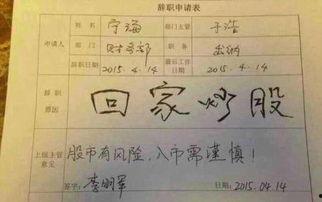 辞职申请表
申请人 姓名 宁海 部门主管 于浩
部门 财务部 职务 出纳
辞职日期 2015.4.14 最后工作日期 2015.4.14
辞职原因 回家炒股
上级主管意见 股市有风险，入市需谨慎！
签字：李明军 日期：2015.04.14